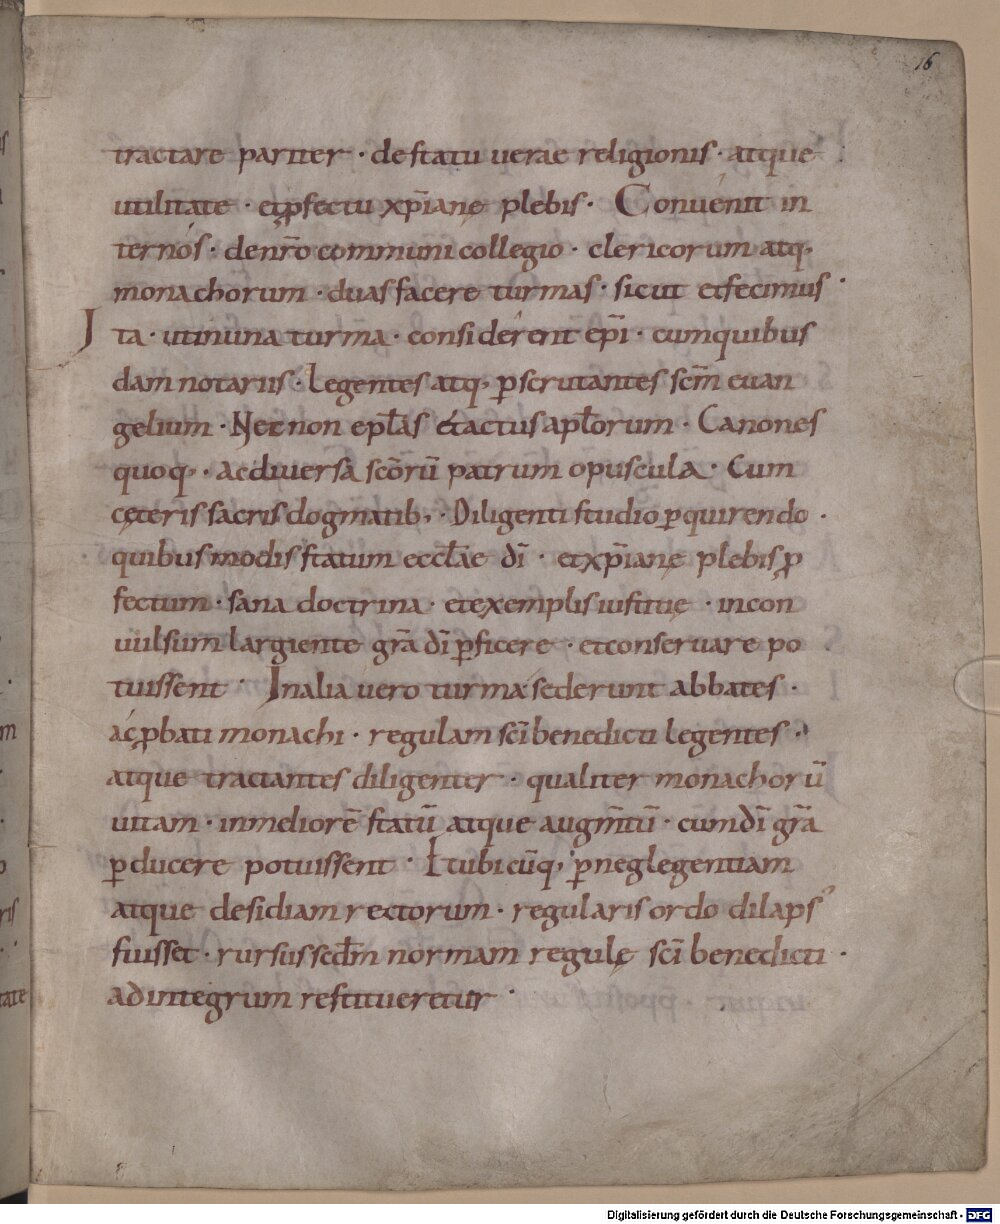 16
tractare pariter · destatu uerae religionis · atque
utilitate · et ꝓfectu xp̄ianę plebis · Conuenit in
ternos · denr̄o communi collegio · clericorum atq;
monachorum · duas facere turmas · sicut et fecimus ·
Ita · utinuna turma · considerent ep̄i · cumquibus
dam notariis · legentes atq; ꝑscrutantes scm̄ euan
gelium · Necnon epl̄as et actus apl̄orum · Canones
quoq; · ac diuersa scōrū patrum opuscula · Cum
cęteris sacris dogmatib; · Diligenti studio ꝑquirendo ·
quibus modis statum eccl̄ae dī · et xp̄ianę plebis ꝓ
fectum · sana doctrina · et exemplis iustitię · incon
uulsum largiente gr̄a dī ꝑficere · et conseruare po
tuissent · In alia uero turma sederunt abbates ·
ac ꝓbati monachi · regulam scī benedicti legentes ·
atque tractantes diligenter · qualiter monachorū
uitam · inmeliorē statū atque augm̄tū · cum dī gr̄a
ꝑducere potuissent · Et ubicūq; ꝑ neglegentiam
atque desidiam rectorum · regularis ordo dilapsꝰ
fuisset · rursus scdm̄ normam regulę scī benedicti ·
adintegrum restitueretur ·
Digitalisierung gefördert durch die Deutsche Forschungsgemeinschaft - DFG